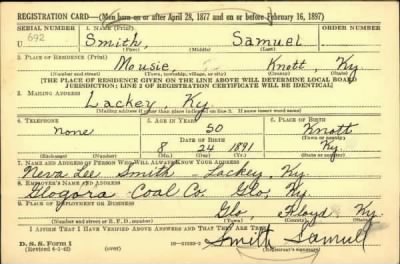 REGISTRATION CARD—(Men born on or after April 28, 1877 and on or before February 16, 1897)
SERIAL NUMBER 1. NAME (Print) ORDER NUMBER
U 692 Smith, Samuel
(First) (Middle) (Last)
2. PLACE OF RESIDENCE (Print)
Mousie, Knott Ky.
(Number and street) (Town, township, village, or city) (County) (State)
[THE PLACE OF RESIDENCE GIVEN ON THE LINE ABOVE WILL DETERMINE LOCAL BOARD
JURISDICTION; LINE 2 OF REGISTRATION CERTIFICATE WILL BE IDENTICAL]
3. MAILING ADDRESS
Lackey, Ky.
[Mailing address if other than place indicated on line 2. If same insert word same]
4. TELEPHONE 5. AGE IN YEARS 6. PLACE OF BIRTH
none 50 Knott
DATE OF BIRTH (Town or county)
8 24 1891 Ky.
(Exchange) (Number) (Mo.) (Day) (Yr.) (State or country)
7. NAME AND ADDRESS OF PERSON WHO WILL ALWAYS KNOW YOUR ADDRESS
Neva Lee Smith Lackey, Ky.
8. EMPLOYER'S NAME AND ADDRESS
Glogora Coal Co. Glo, Ky.
9. PLACE OF EMPLOYMENT OR BUSINESS
Glo, Floyd Ky.
(Number and street or R. F. D. number) (Town) (County) (State)
I AFFIRM THAT I HAVE VERIFIED ABOVE ANSWERS AND THAT THEY ARE TRUE.
D. S. S. Form 1
(Revised 4-1-42) (over) Smith Samuel